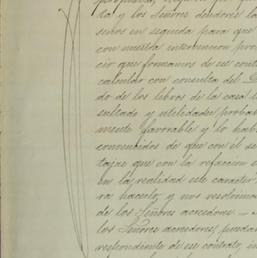 to y los Señores deudores la
señor en segunda para que
con nuestra intervencion pro
cio que formamos de su con
calcular con consulta del
do de los libros de la casa
sultado y utilidades proba
mente favorable y lo hab
convencidos de que con el se
taje que con la refaccion
en la realidad este caracter
ra hacerlo, y nos resolvimos
de los Señores acreedores
los Señores acreedores, pueda
respondiente de ese contrato, in